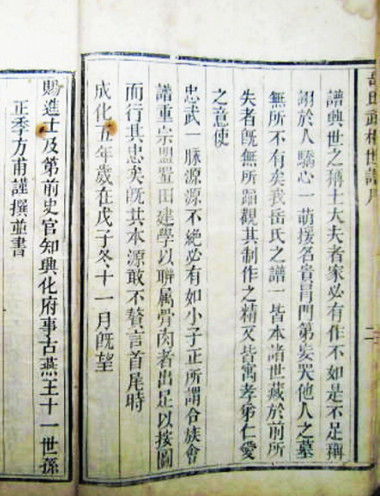 岳氏武穆世譜序
譜興世之稱士大夫者家必有作不如是不足稱
詡於人驕心一萌援名貴冐門第妄哭他人之墓
無所不有矣我岳氏之譜一皆本諸世藏於前所
失者旣無所蹋觀其制作之精又皆寓孝弟仁愛
之意使
忠武一脉源源不絕必有如小子正所謂合族會
譜重宗盟置田建學以聯属骨肉者出足以按圖
而行其忠矣旣其本源敢不贅言首尾時
成化五年歲在戊子冬十一月旣望
賜進士及第前史官知興化府事古燕王十一世孫
正季方甫謹撰並書